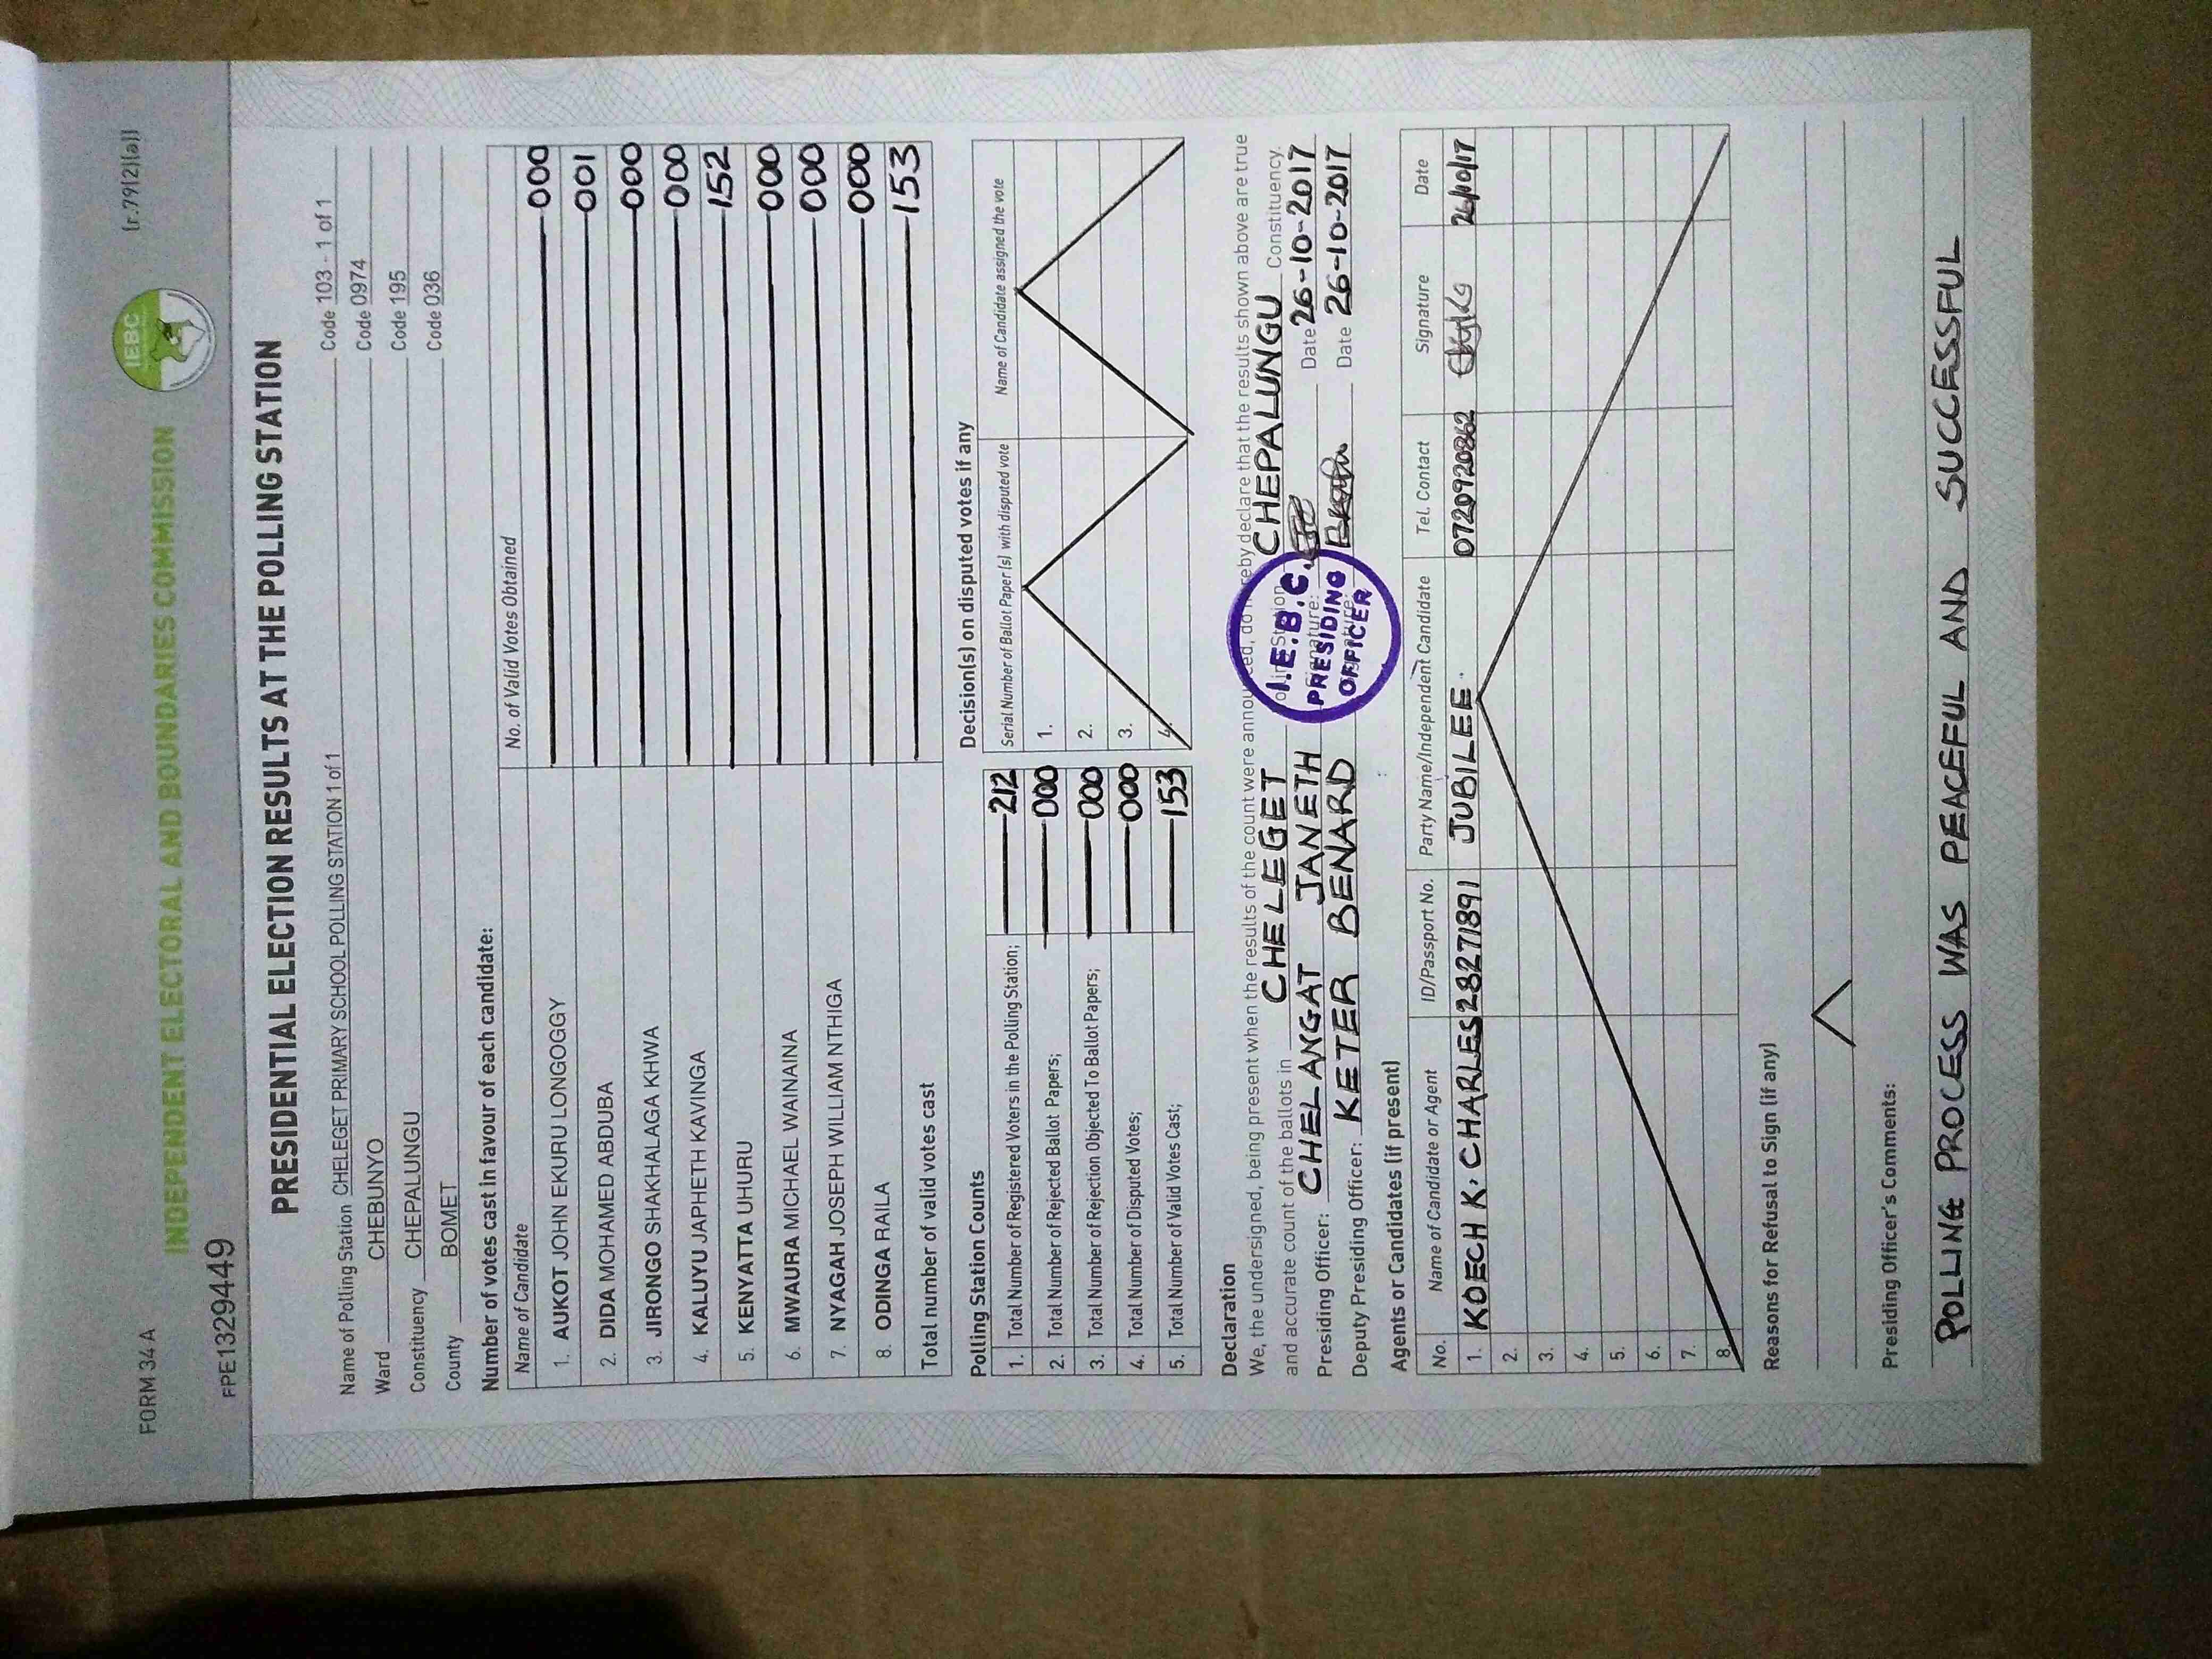 FORM 34 A
(r.79(2)(a))
INDEPENDENT ELECTORAL AND BOUNDARIES COMMISSION
IEBC
FPE1329449
PRESIDENTIAL ELECTION RESULTS AT THE POLLING STATION
Name of Polling Station CHELEGET PRIMARY SCHOOL POLLING STATION 1 of 1 Code 103 - 1 of 1
Ward CHEBUNYO Code 0974
Constituency CHEPALUNGU Code 195
County BOMET Code 036
Number of votes cast in favour of each candidate:
Name of Candidate No. of Valid Votes Obtained
1. AUKOT JOHN EKURU LONGOGGY 000
2. DIDA MOHAMED ABDUBA 001
3. JIRONGO SHAKHALAGA KHWA 000
4. KALUYU JAPHETH KAVINGA 000
5. KENYATTA UHURU 152
6. MWAURA MICHAEL WAINAINA 000
7. NYAGAH JOSEPH WILLIAM NTHIGA 000
8. ODINGA RAILA 000
Total number of valid votes cast 153
Polling Station Counts
1. Total Number of Registered Voters in the Polling Station; 212
2. Total Number of Rejected Ballot Papers; 000
3. Total Number of Rejection Objected To Ballot Papers; 000
4. Total Number of Disputed Votes; 000
5. Total Number of Valid Votes Cast; 153
Decision(s) on disputed votes if any
Serial Number of Ballot Paper (s) with disputed vote Name of Candidate assigned the vote
1.
2.
3.
4.
Declaration
We, the undersigned, being present when the results of the count were announced, do hereby declare that the results shown above are true
and accurate count of the ballots in CHELEGET Polling Station CHEPALUNGU Constituency.
Presiding Officer: CHELANGAT JANETH Signature: Date 26-10-2017
Deputy Presiding Officer: KETER BENARD Signature: Date 26-10-2017
I.E.B.C.
PRESIDING
OFFICER
Agents or Candidates (if present)
No. Name of Candidate or Agent ID/Passport No. Party Name/Independent Candidate Tel. Contact Signature Date
1. KOECH K. CHARLES 28271891 JUBILEE 0720920862 26/10/17
2.
3.
4.
5.
6.
7.
8.
Reasons for Refusal to Sign (if any)
Presiding Officer's Comments:
POLLING PROCESS WAS PEACEFUL AND SUCCESSFUL